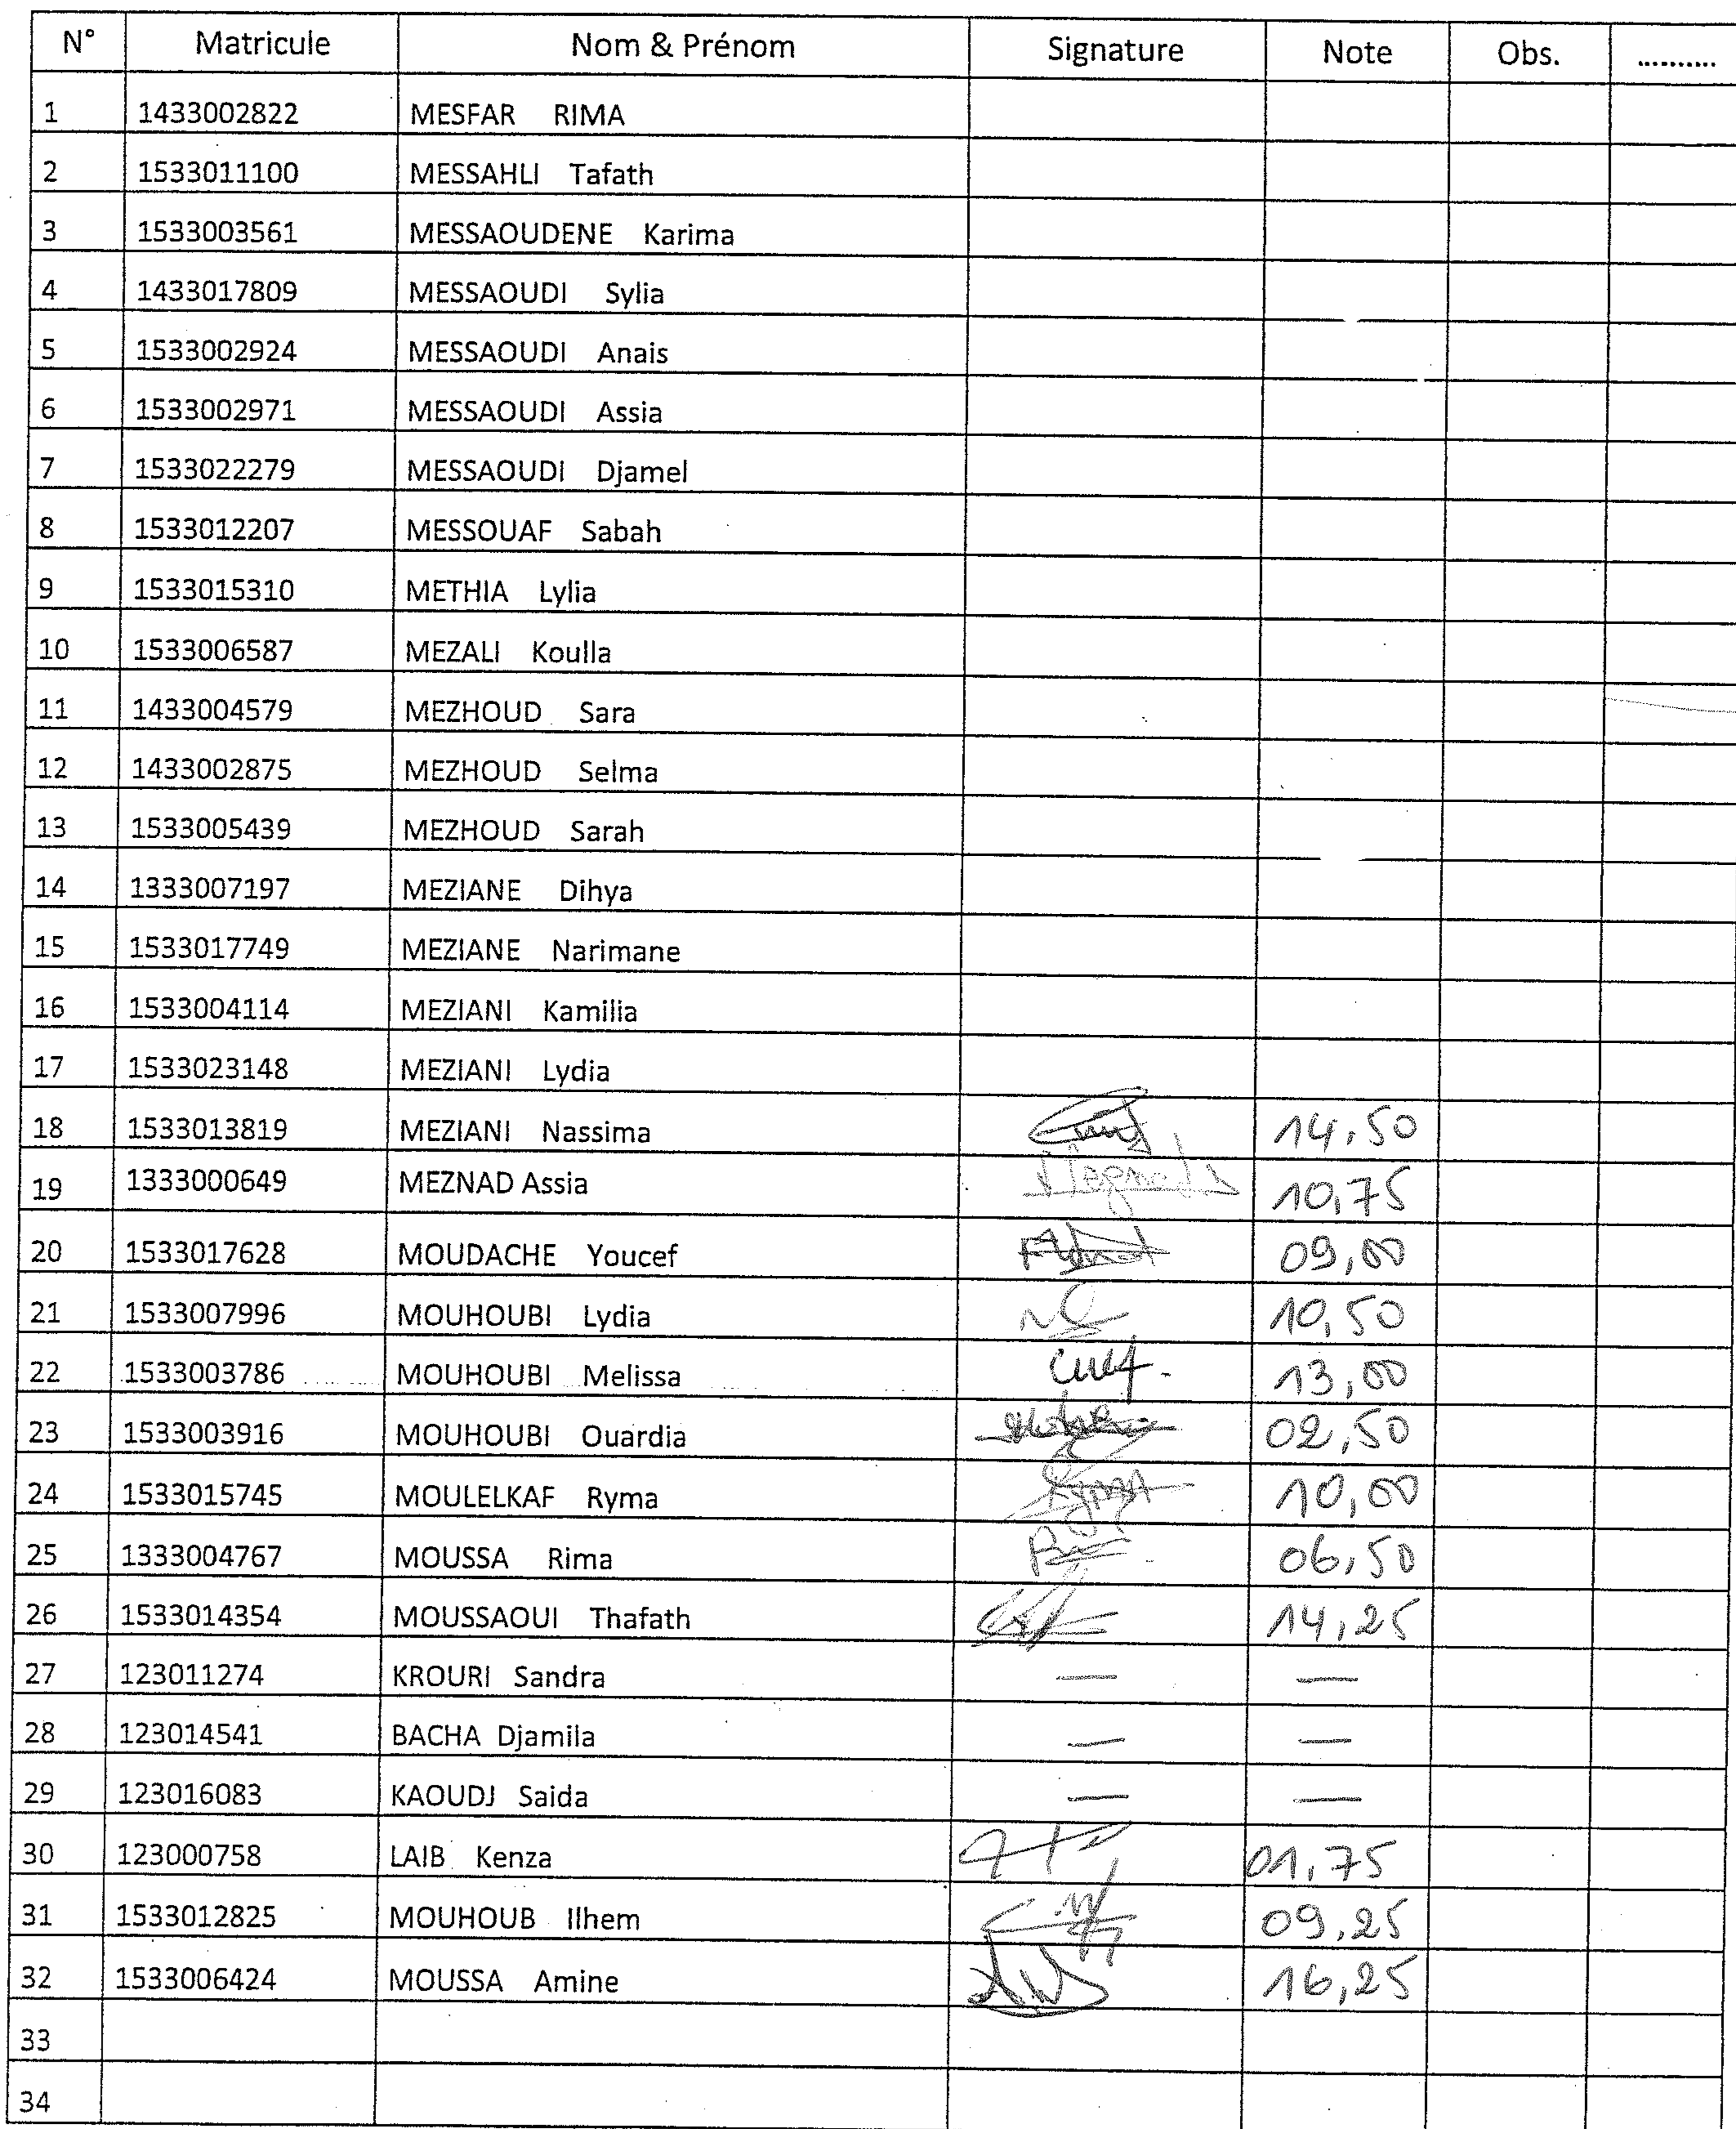 N° Matricule Nom & Prénom Signature Note Obs. ..........
1 1433002822 MESFAR RIMA
2 1533011100 MESSAHLI Tafath
3 1533003561 MESSAOUDENE Karima
4 1433017809 MESSAOUDI Sylia
5 1533002924 MESSAOUDI Anais
6 1533002971 MESSAOUDI Assia
7 1533022279 MESSAOUDI Djamel
8 1533012207 MESSOUAF Sabah
9 1533015310 METHIA Lylia
10 1533006587 MEZALI Koulla
11 1433004579 MEZHOUD Sara
12 1433002875 MEZHOUD Selma
13 1533005439 MEZHOUD Sarah
14 1333007197 MEZIANE Dihya
15 1533017749 MEZIANE Narimane
16 1533004114 MEZIANI Kamilia
17 1533023148 MEZIANI Lydia
18 1533013819 MEZIANI Nassima 14,50
19 1333000649 MEZNAD Assia 10,75
20 1533017628 MOUDACHE Youcef 09,00
21 1533007996 MOUHOUBI Lydia 10,50
22 1533003786 MOUHOUBI Melissa 13,00
23 1533003916 MOUHOUBI Ouardia 02,50
24 1533015745 MOULELKAF Ryma 10,00
25 1333004767 MOUSSA Rima 06,50
26 1533014354 MOUSSAOUI Thafath 14,25
27 123011274 KROURI Sandra — —
28 123014541 BACHA Djamila — —
29 123016083 KAOUDJ Saida — —
30 123000758 LAIB Kenza 01,75
31 1533012825 MOUHOUB Ilhem 09,25
32 1533006424 MOUSSA Amine 16,25
33
34